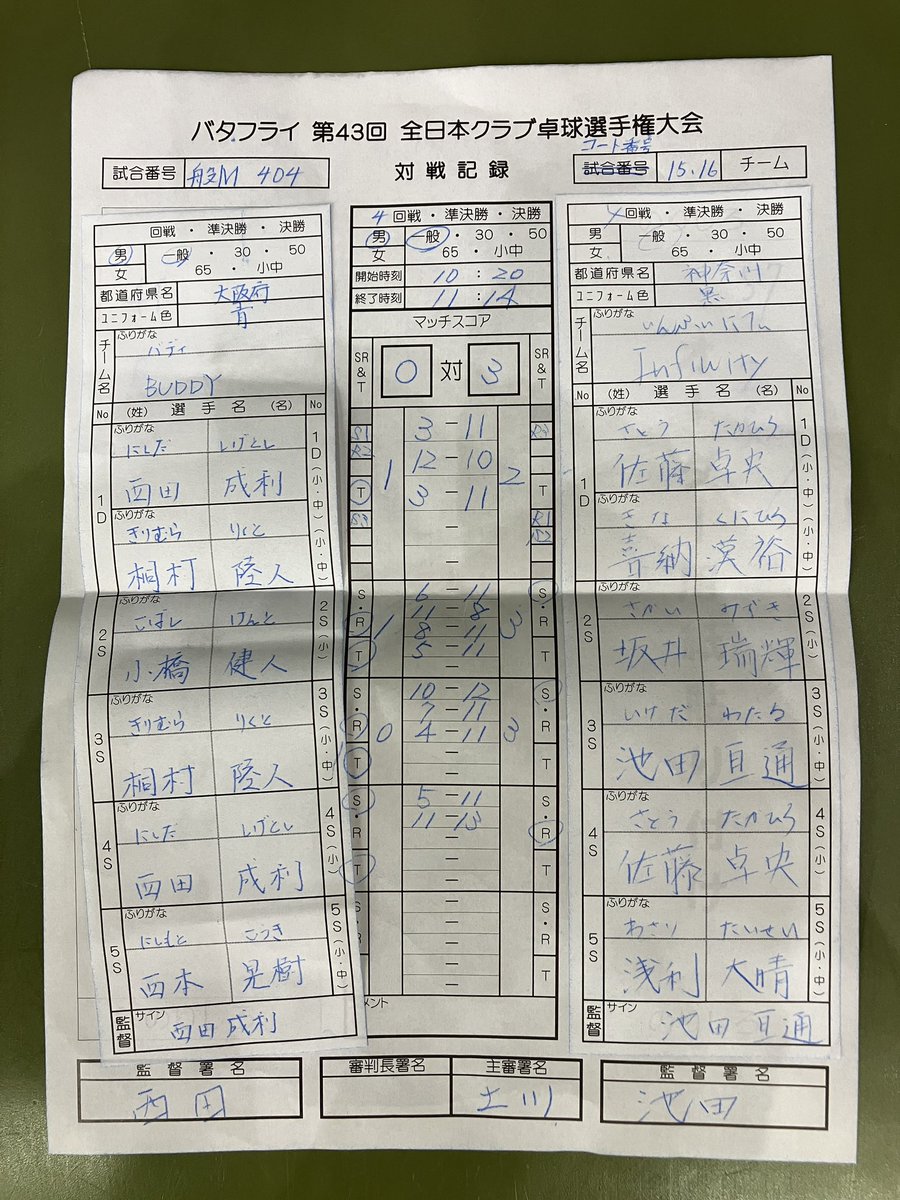 バタフライ 第43回 全日本クラブ卓球選手権大会
試合番号 般M 404
対戦記録
コート番号
試合番号 15.16 チーム
回戦・準決勝・決勝
男 女 一般・30・50 65・小中
都道府県名 大阪府
ユニフォーム色 青
チーム名 ふりがな バディ
BUDDY
No (姓) 選手名 (名) No
1D ふりがな にしだ しげとし 1D(小・中)
西田 成利
ふりがな きりむら りくと (小・中)
桐村 陸人
2S ふりがな こばし けんと 2S(小)
小橋 健人
3S ふりがな きりむら りくと 3S(小・中)
桐村 陸人
4S ふりがな にしだ しげとし 4S(小)
西田 成利
5S ふりがな にしもと こうき 5S(小・中)
西本 晃樹
監督 サイン 西田成利
4回戦・準決勝・決勝
男 女 一般・30・50 65・小中
開始時刻 10:20
終了時刻 11:14
マッチスコア
SR&T 0 対 3 SR&T
S1 R2 T
1 2
3 - 11
12 - 10
3 - 11
T R1
S・R T 1 3 S・R T
6 - 11
11 - 8
8 - 11
5 - 11
S・R T 0 3 S・R T
10 - 12
7 - 11
4 - 11
S・R T S・R T
5 - 11
11 - 13
S・R T S・R T
メント
回戦・準決勝・決勝
男 女 一般・30・50 65・小中
都道府県名 神奈川
ユニフォーム色 黒
チーム名 ふりがな
Infinity
No (姓) 選手名 (名) No
1D ふりがな さとう たかひろ 1D(小・中)
佐藤 卓央
ふりがな きな くにひろ (小・中)
喜納 漠裕
2S ふりがな さかい みずき 2S(小)
坂井 瑞輝
3S ふりがな いけだ わたる 3S(小・中)
池田 亘通
4S ふりがな さとう たかひろ 4S(小)
佐藤 卓央
5S ふりがな あさり たいせい 5S(小・中)
浅利 大晴
監督 サイン 池田亘通
監督署名 審判長署名 主審署名 監督署名
西田 土川 池田